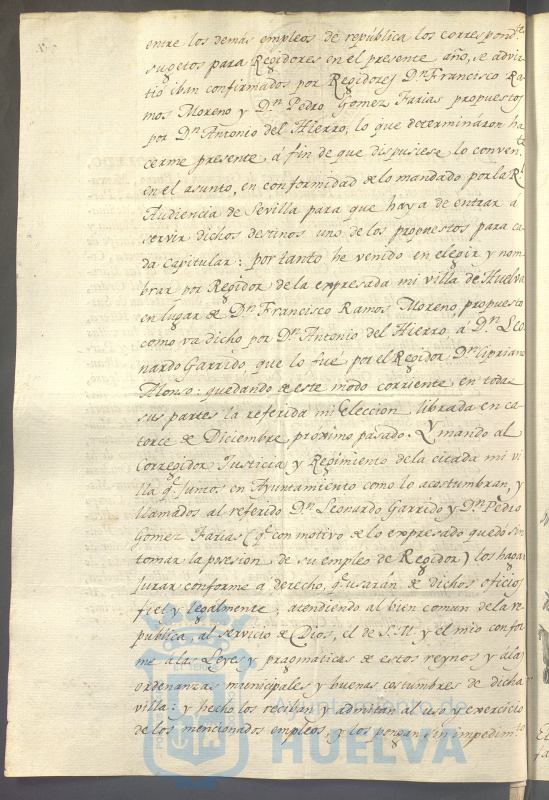 entre los demás empleos de republica los correspond.tes
sugetos para Regidores en el presente año, se advir-
tió iban confirmados por Regidores D.n Francisco Ra-
mos Moreno y D.n Pedro Gomez Farias propuestos
por D.n Antonio del Hierro, lo que determináron ha-
cerme presente, á fin de que dispusiese lo conven.te
en el asunto, en conformidad de lo mandado por la R.l
Audiencia de Sevilla para que haya de entrar á
servir dichos destinos uno de los propuestos para ca-
da capitular: por tanto he venido en elegir y nom-
brar por Regidor de la expresada mi villa de Huelva
en lugar de D.n Francisco Ramos Moreno propuesto
como va dicho por D.n Antonio del Hierro, á D.n Leo-
nardo Garrido, que lo fué por el Regidor D.n Cipriano
Alonso: quedando de este modo corriente en todas
sus partes la referida mi Eleccion, librada en ca-
torce de Diciembre proximo pasado. Y mando al
Corregidor Justicia y Regimiento de la citada mi vi-
lla q.e juntos en Ayuntamiento como lo acostumbran, y
llamados al referido D.n Leonardo Garrido y D.n Pedro
Gomez Farias (q.e con motivo de lo expresado quedó sin
tomar la posesion de su empleo de Regidor) los hagan
Jurar conforme a derecho, q.e usarán de dichos oficios
fiel y legalmente, atendiendo al bien comun de la re-
publica, al servicio de Dios, el de S. M. y el mio confor-
me a las Leyes y pragmáticas de estos reynos y á las
ordenanzas municipales y buenas costumbres de dicha
villa: y hecho los reciban y admitan al uso y exercicio
de los mencionados empleos, y los pongan sin impedim.to
Ayuntamiento de
HUELVA